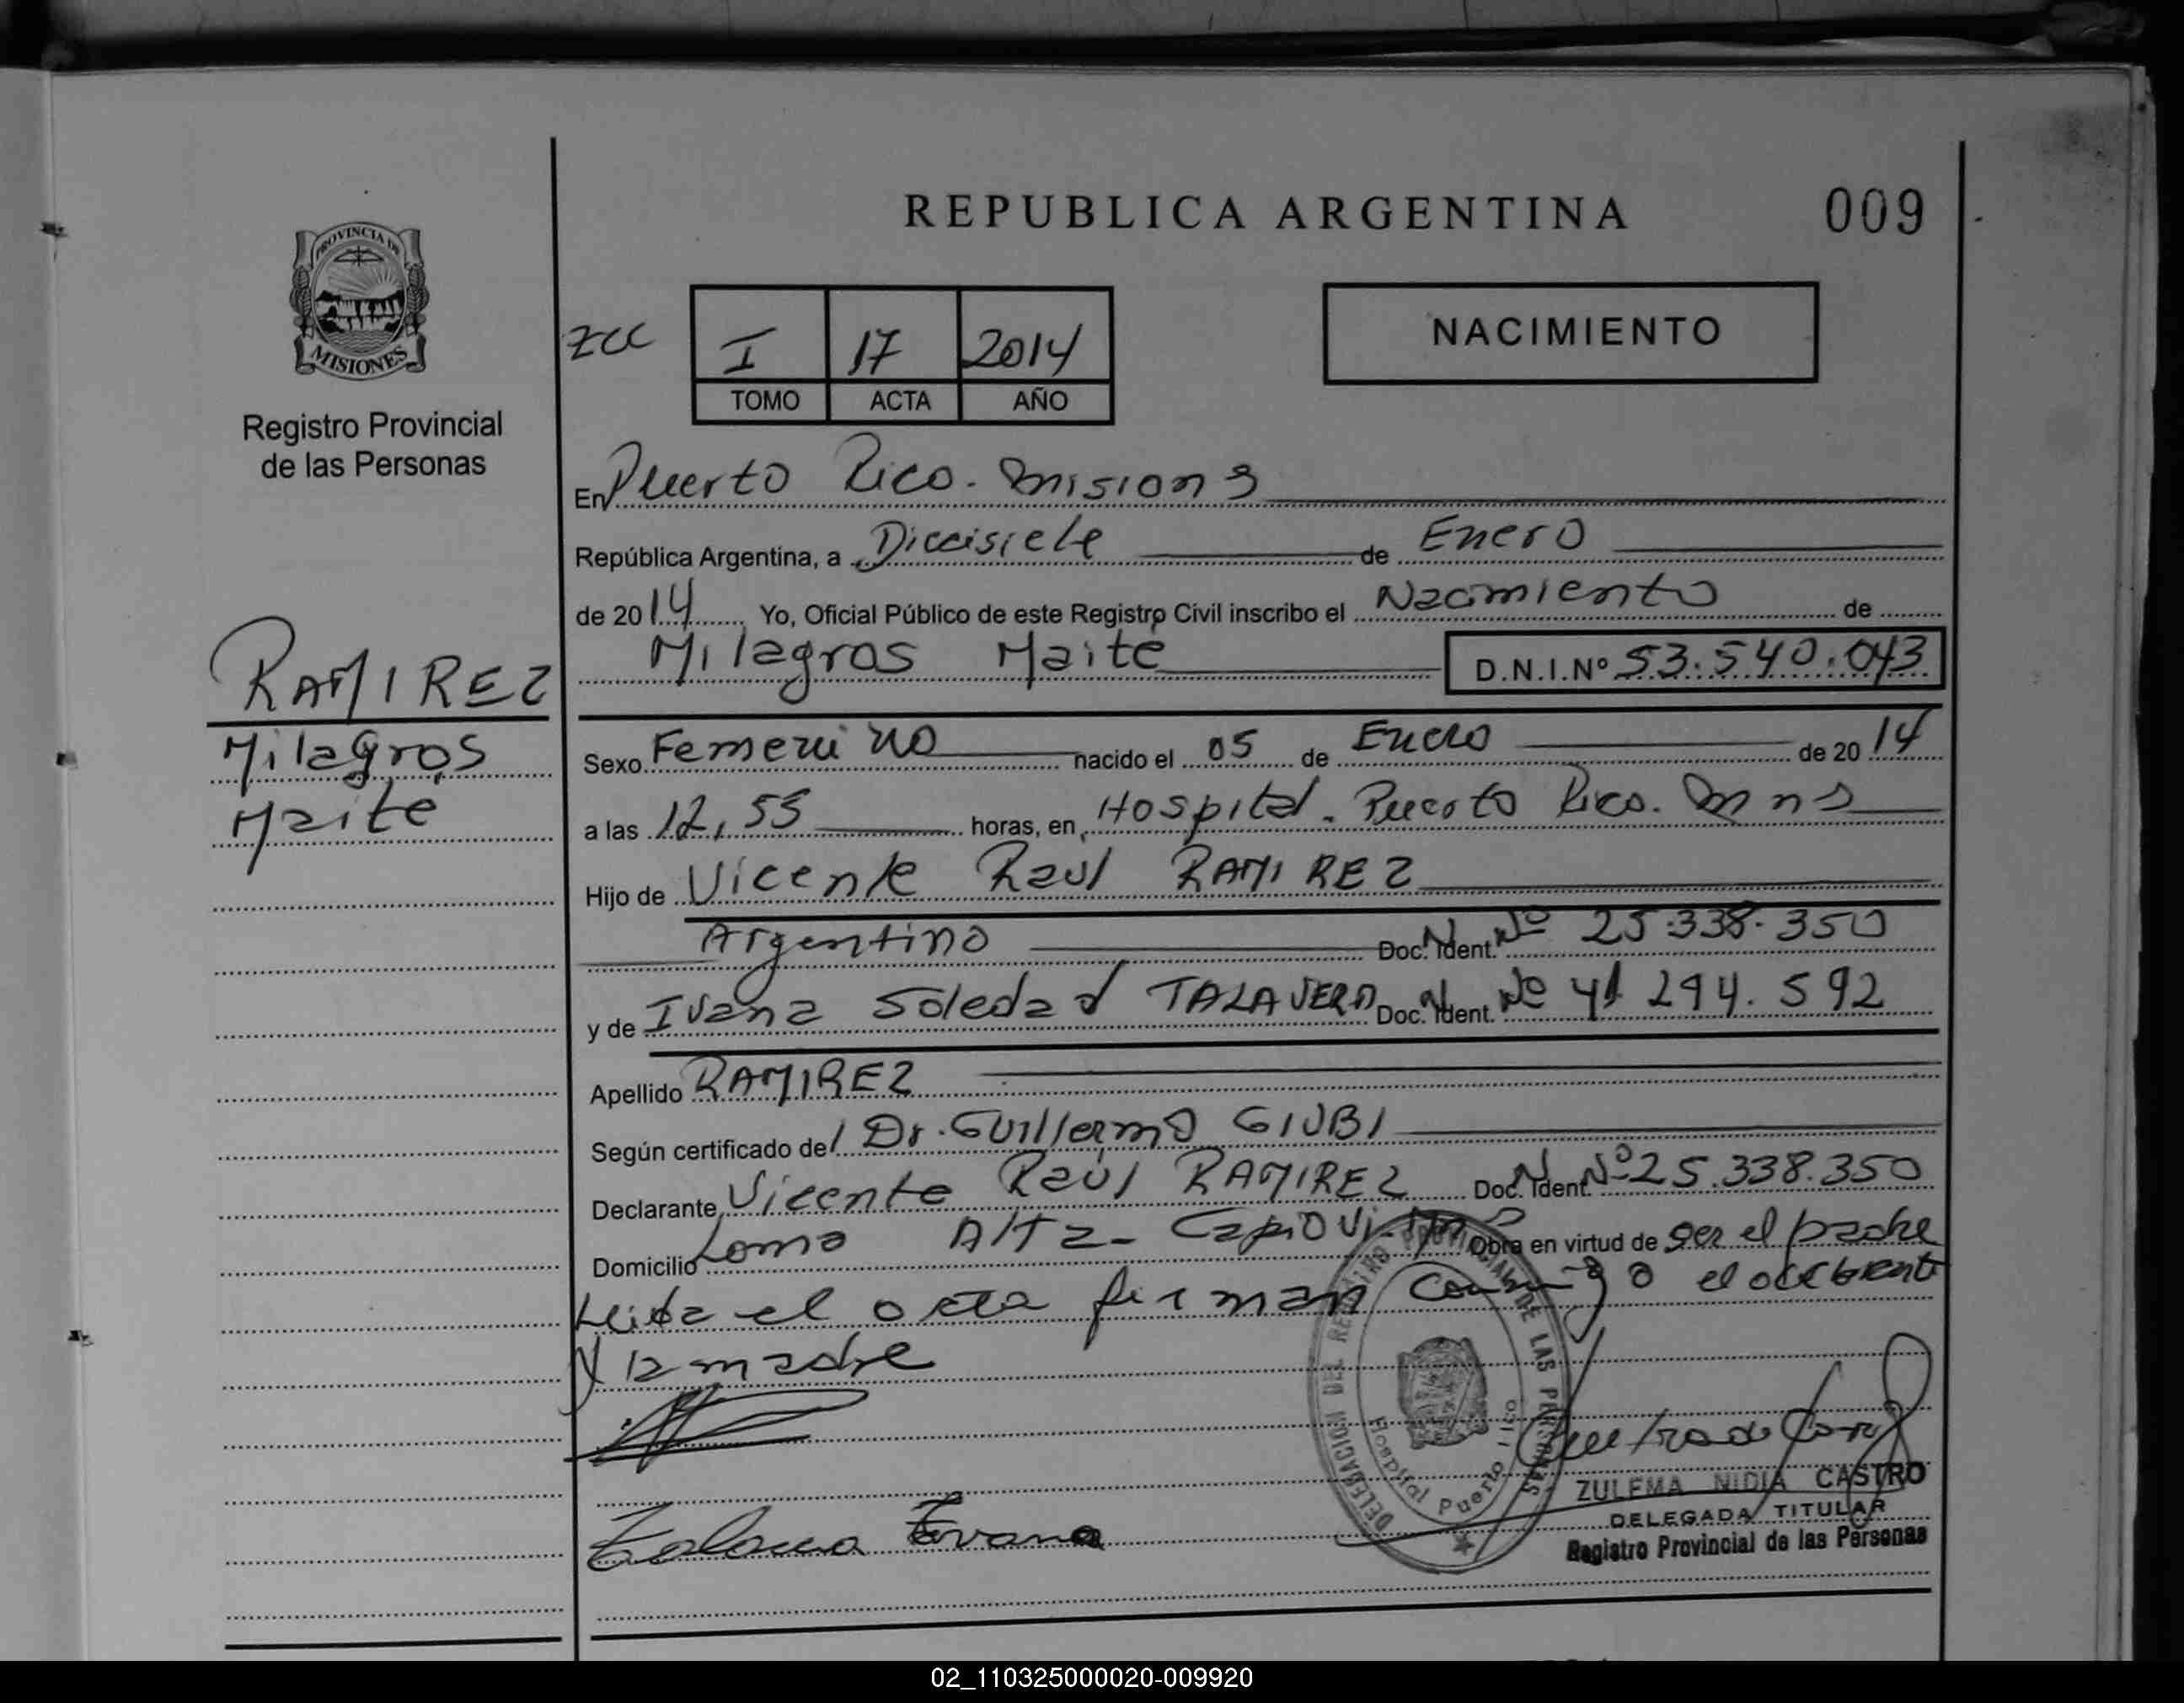 REPUBLICA ARGENTINA
009
PROVINCIA DE
MISIONES
Registro Provincial
de las Personas
zcc
I 17 2014
TOMO ACTA AÑO
NACIMIENTO
En Puerto Rico. Misions
República Argentina, a Diecisiete de Enero
de 2014 Yo, Oficial Público de este Registro Civil inscribo el Nacimiento de
Milagros Maite D.N.I.Nº 53.540.043
RAMIREZ
Milagros
Maite
Sexo Femenino nacido el 05 de Enero de 2014
a las 12,55 horas, en Hospital. Puerto Rico. Mns
Hijo de Vicente Raul RAMIREZ
Argentino Doc. Ident. Nº 25.338.350
y de Ivana Soledad TALAVERA Doc. Ident. Nº 41 294.592
Apellido RAMIREZ
Según certificado del Dr. Guillermo GIUBI
Declarante Vicente Raúl RAMIREZ Doc. Ident. Nº 25.338.350
Domicilio Loma Alta- Capiovi. Obra en virtud de ser el padre
Leida el acta firman conmigo el
y la madre
DELEGACION DEL REGISTRO PROVINCIAL DE LAS PERSONAS
Hospital Puerto Rico
Ivana
ZULEMA NIDIA CASTRO
DELEGADA TITULAR
Registro Provincial de las Personas
02_110325000020-009920